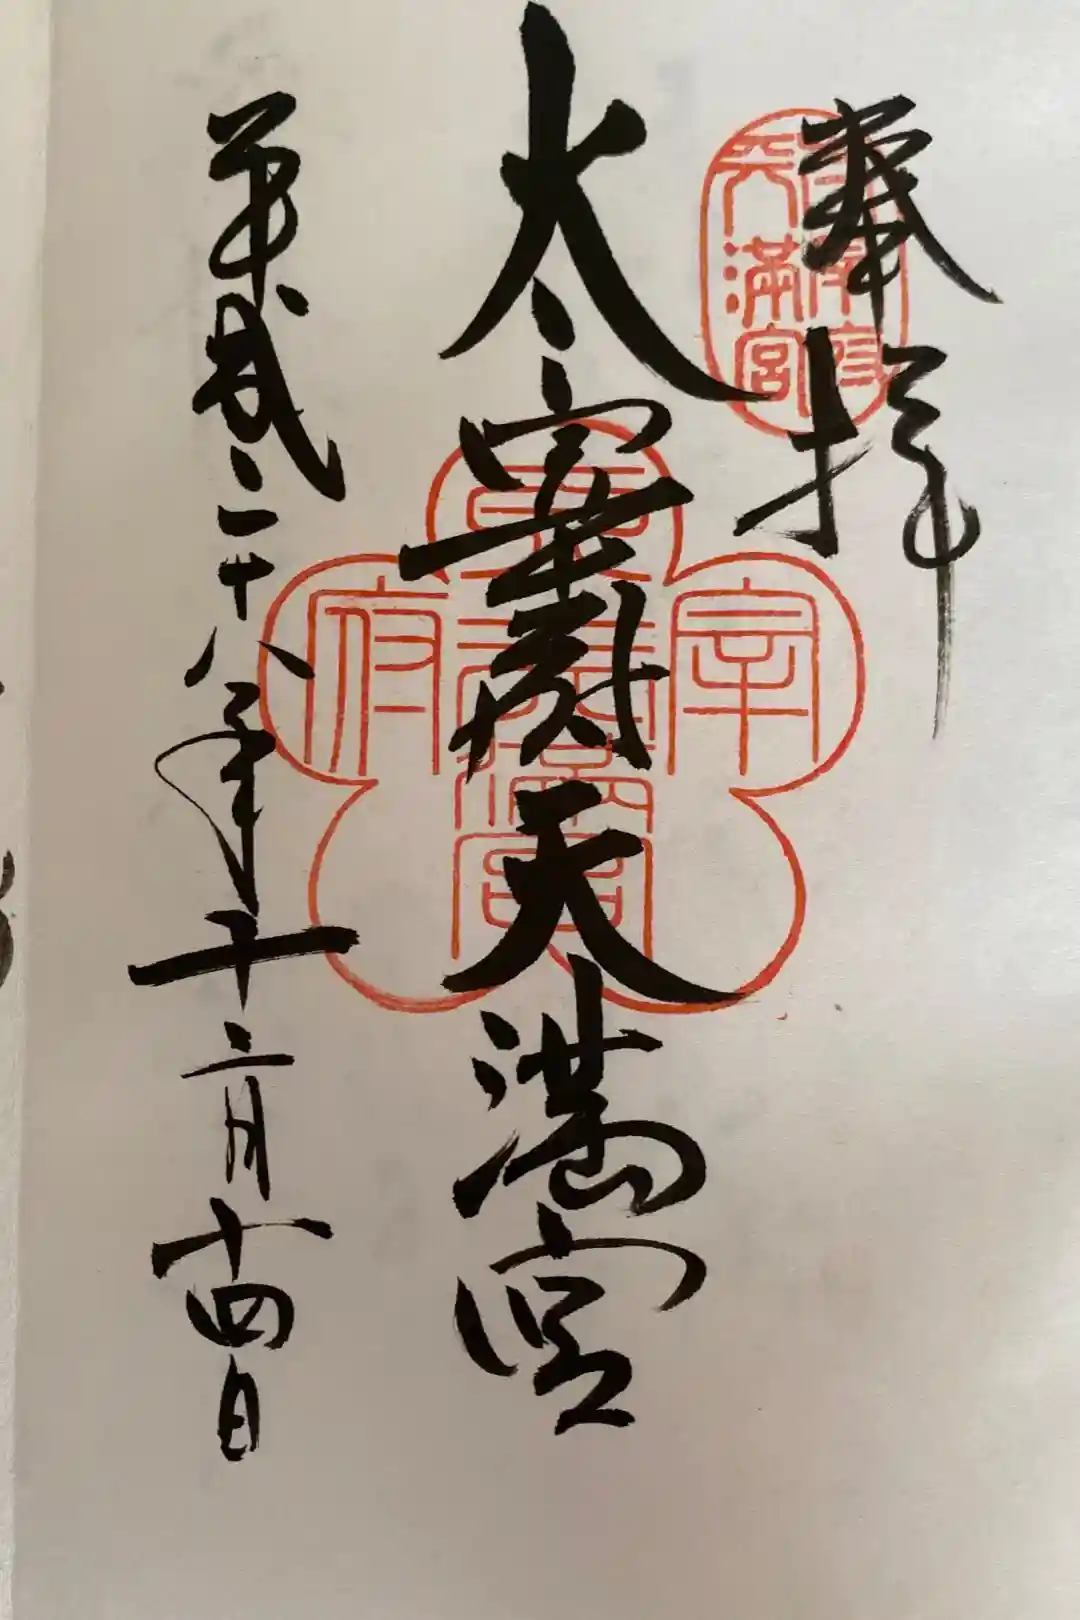 奉拝
太宰府天満宮
平成二十八年十二月十四日
宰府
天滿宮
宰
府
滿宮